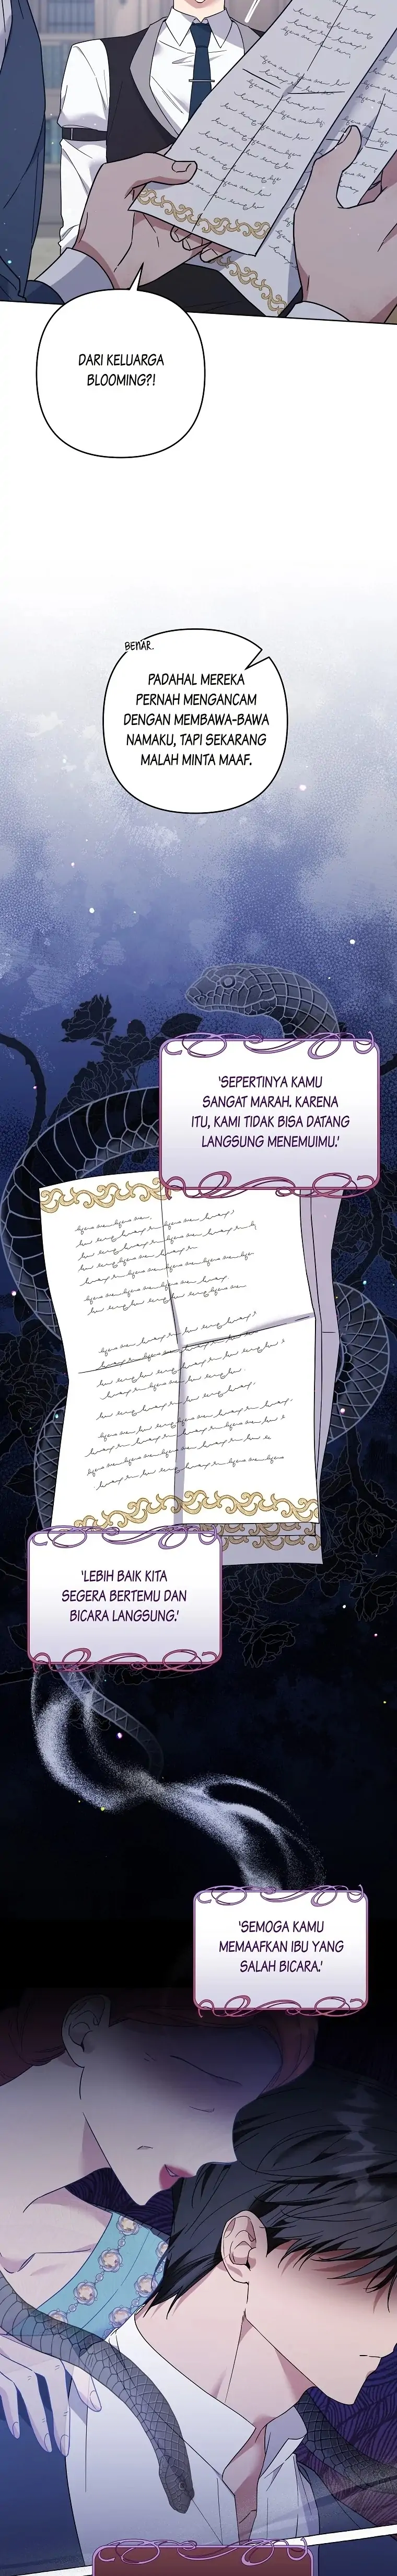 DARI KELUARGA
BLOOMING?!
BENAR.
PADAHAL MEREKA
PERNAH MENGANCAM
DENGAN MEMBAWA-BAWA
NAMAKU, TAPI SEKARANG
MALAH MINTA MAAF.
'SEPERTINYA KAMU
SANGAT MARAH. KARENA
ITU, KAMI TIDAK BISA DATANG
LANGSUNG MENEMUIMU.'
'LEBIH BAIK KITA
SEGERA BERTEMU DAN
BICARA LANGSUNG.'
'SEMOGA KAMU
MEMAAFKAN IBU YANG
SALAH BICARA.'